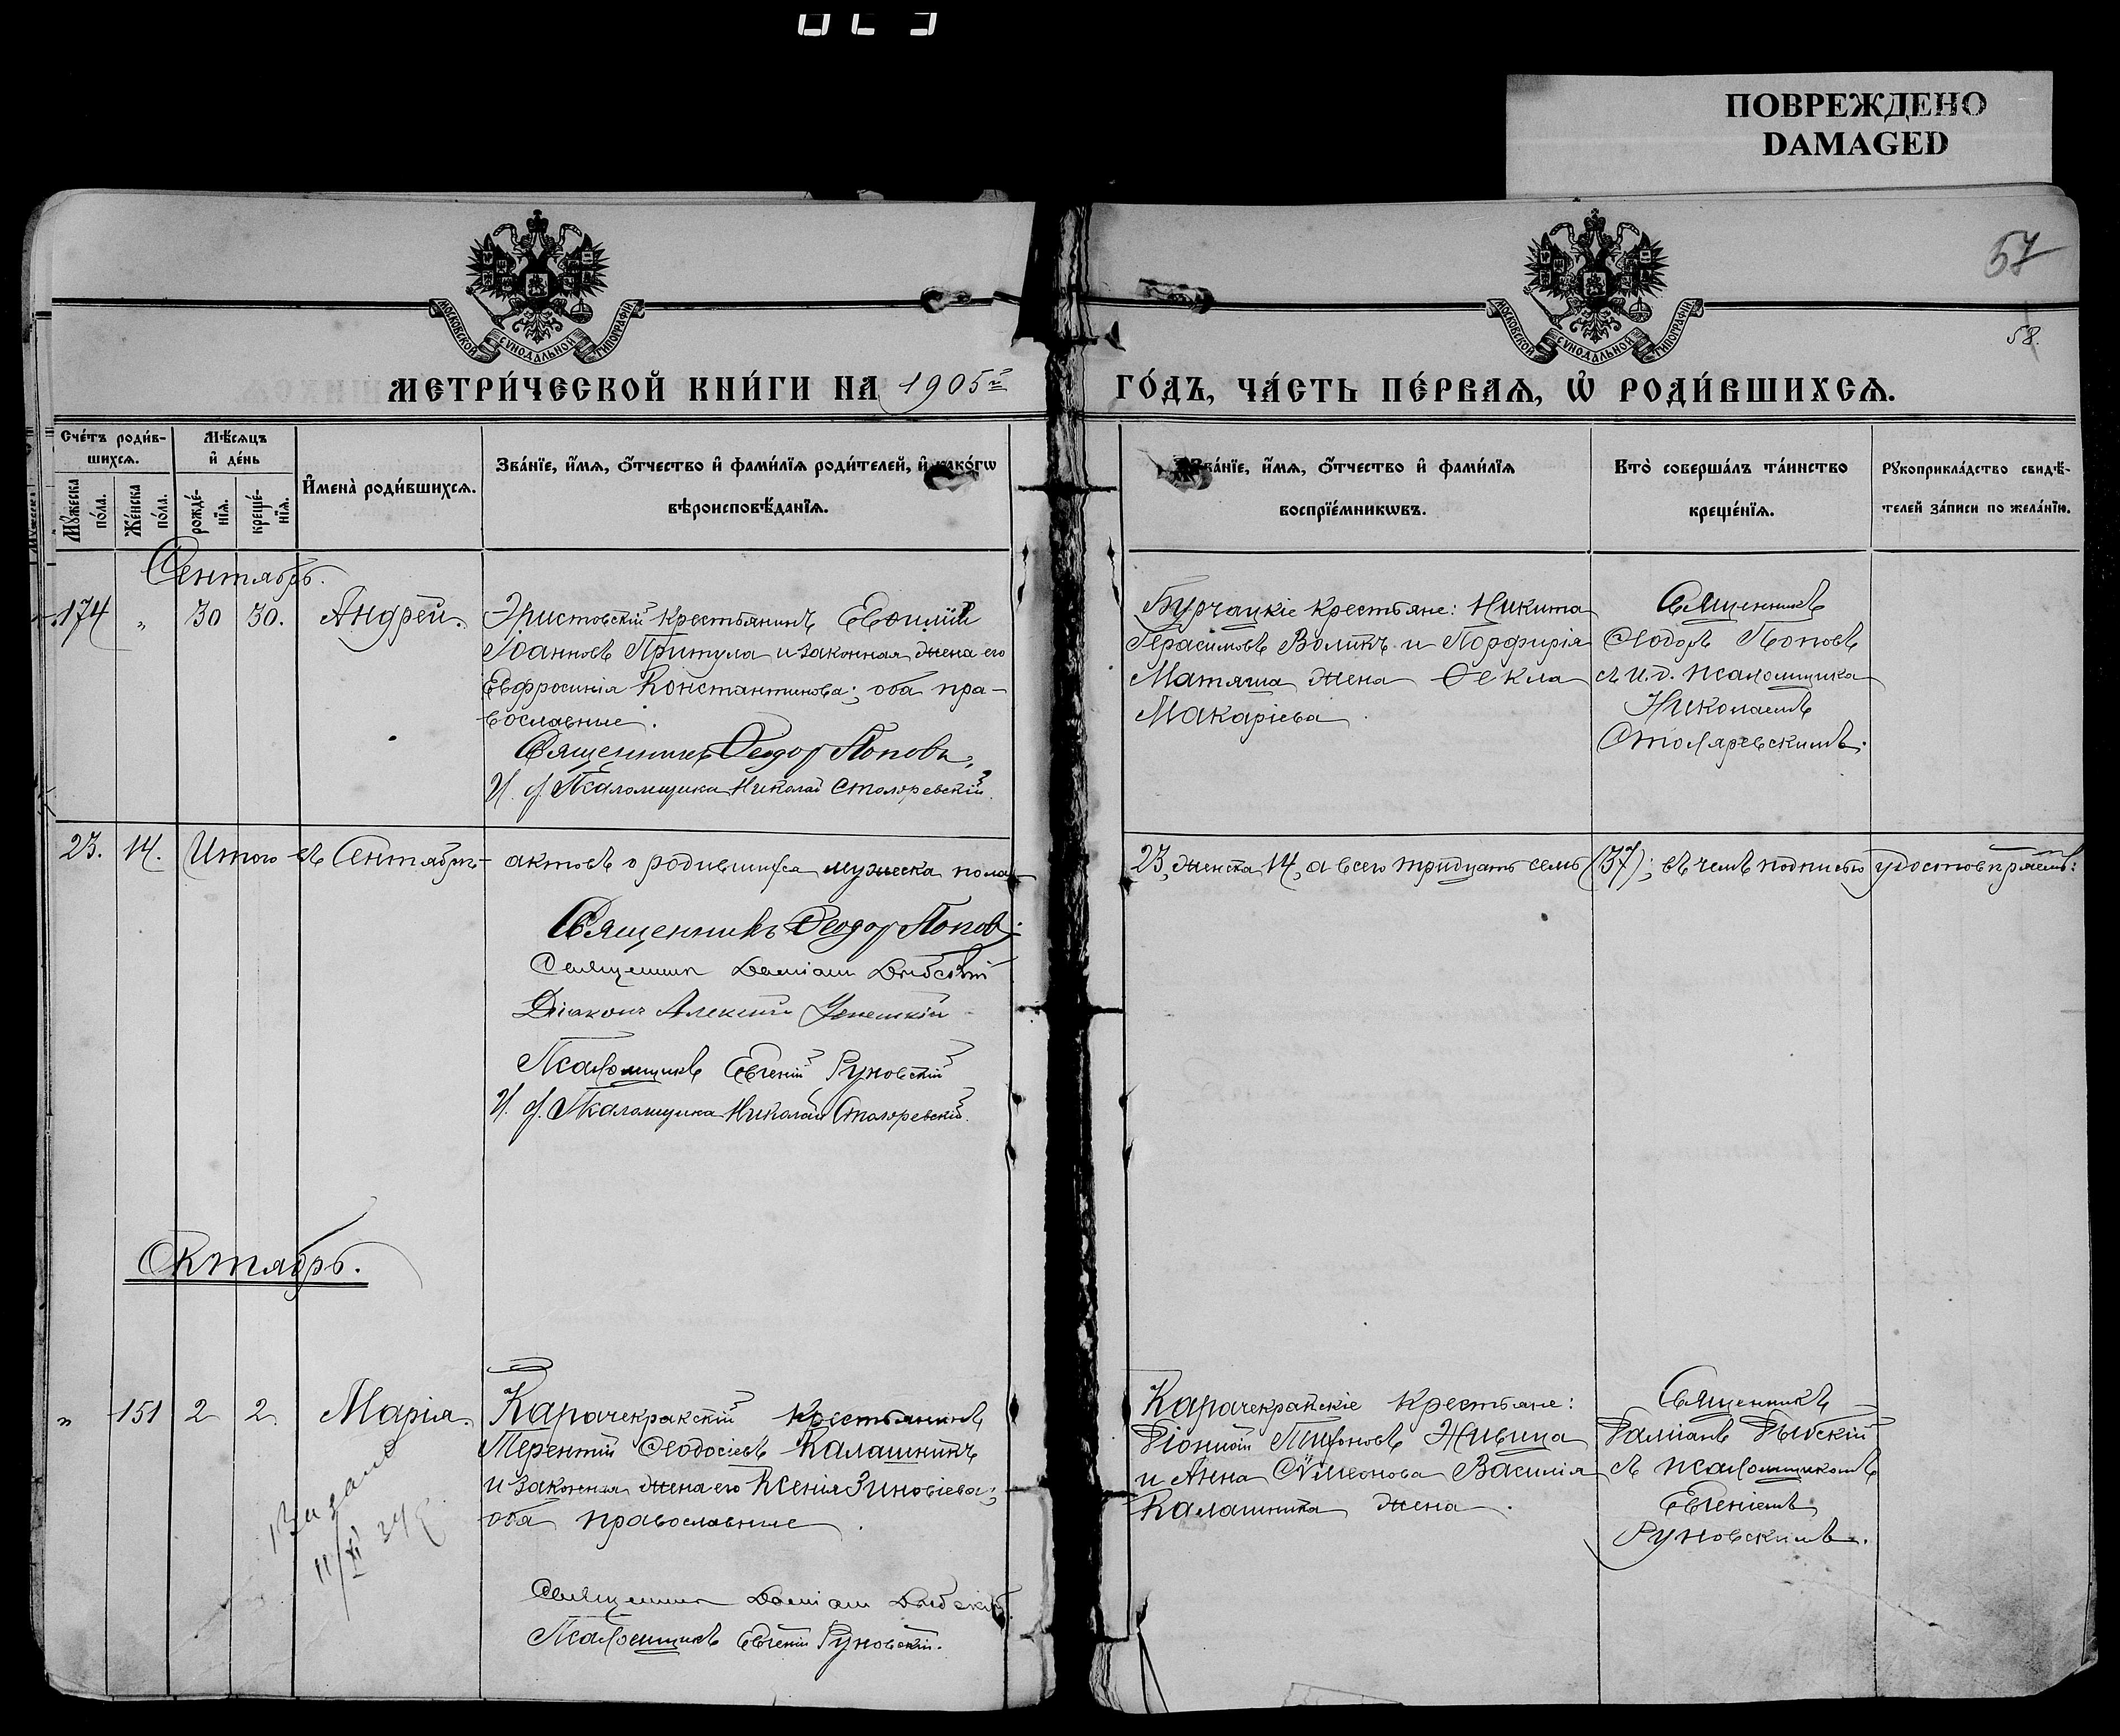 ПОВРЕЖДЕНО
DAMAGED
57
58.
МОСКОВСКОЙ СУНОДАЛЬНОЙ ТИПОГРАФІИ
МОСКОВСКОЙ СУНОДАЛЬНОЙ ТИПОГРАФІИ
МЕТРИ́ЧЕСКОЙ КНИ́ГИ НА 1905й
ГО́ДЪ, ЧА́СТЬ ПЕ́РВАѦ, Ѡ҆ РОДИ́ВШИХСѦ.
Сче́тъ роди́в-
шихсѧ.
Мꙋ́жеска по́ла.
Же́нска по́ла.
Мѣ́сѧцъ
и҆ де́нь
рожде́-
нїѧ.
креще́-
нїѧ.
И҆мена̀ роди́вшихсѧ.
Зва́нїе, и҆́мѧ, ѻ҆́тчество и҆ фами́лїѧ роди́телей, и҆ како́гѡ
вѣроисповѣ́данїѧ.
Зва́нїе, и҆́мѧ, ѻ҆́тчество и҆ фами́лїѧ
воспрїе́мникѡвъ.
Кто̀ соверша́лъ та́инство
креще́нїѧ.
Рꙋкоприкла́дство свидѣ́-
телей за́писи по жела́нїю.
Сентябрь.
174 „ 30 30. Андрей.
Эристовскій крестьянинъ Евѳимій
Іоанновъ Притула и законная жена его
Евфросинія Константинова; оба пра-
вославные.
Священникъ Ѳеодор Попов.
И. д. Псаломщика Николай Столяревскій.
Бурчацкіе крестьяне: Никита
Герасимовъ Воликъ и Порфирія
Матяша жена Ѳекла
Макаріева
Священникъ
Ѳеодоръ Поповъ
съ и. д. псаломщика
Николаемъ
Столяревскимъ.
23. 14. Итого въ Сентябрѣ актовъ о родившихся мужеска пола
23, женска 14, а всего тридцать семь (37); въ чемъ подписью удостовѣряемъ:
Священникъ Ѳеодор Попов:
Священник Даміан Дыбскій
Діаконъ Алексій
Псаломщикъ Евгеній Руновскій
И. д. Псаломщика Николай Столяревскій.
Октябрь.
„ 151 2 2. Марія.
Карачекракскій крестьянинъ
Терентій Ѳеодосіевъ Калашникъ
и законная жена его Ксенія Зиновіева;
оба православные.
Священник Даміан Дыбскій.
Псаломщикъ Евгеній Руновскій.
Карачекракскіе крестьяне:
Діонисій Тихоновъ Живица
и Анна Сѵмеонова Василія
Калашника жена.
Священникъ
Даміанъ Дыбскій
съ псаломщикомъ
Евгеніемъ
Руновскимъ.
11/XI 34